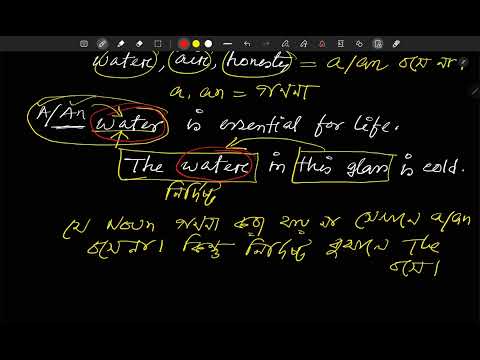 water, air, honesty = a/an বসে না।
a, an = গণনা
A/An water is essential for life.
The water in this glass is cold.
নির্দিষ্ট
যে Noun গণনা করা যায় না সেখানে a/an
বসে না। কিন্তু নির্দিষ্ট বুঝালে The
বসে।